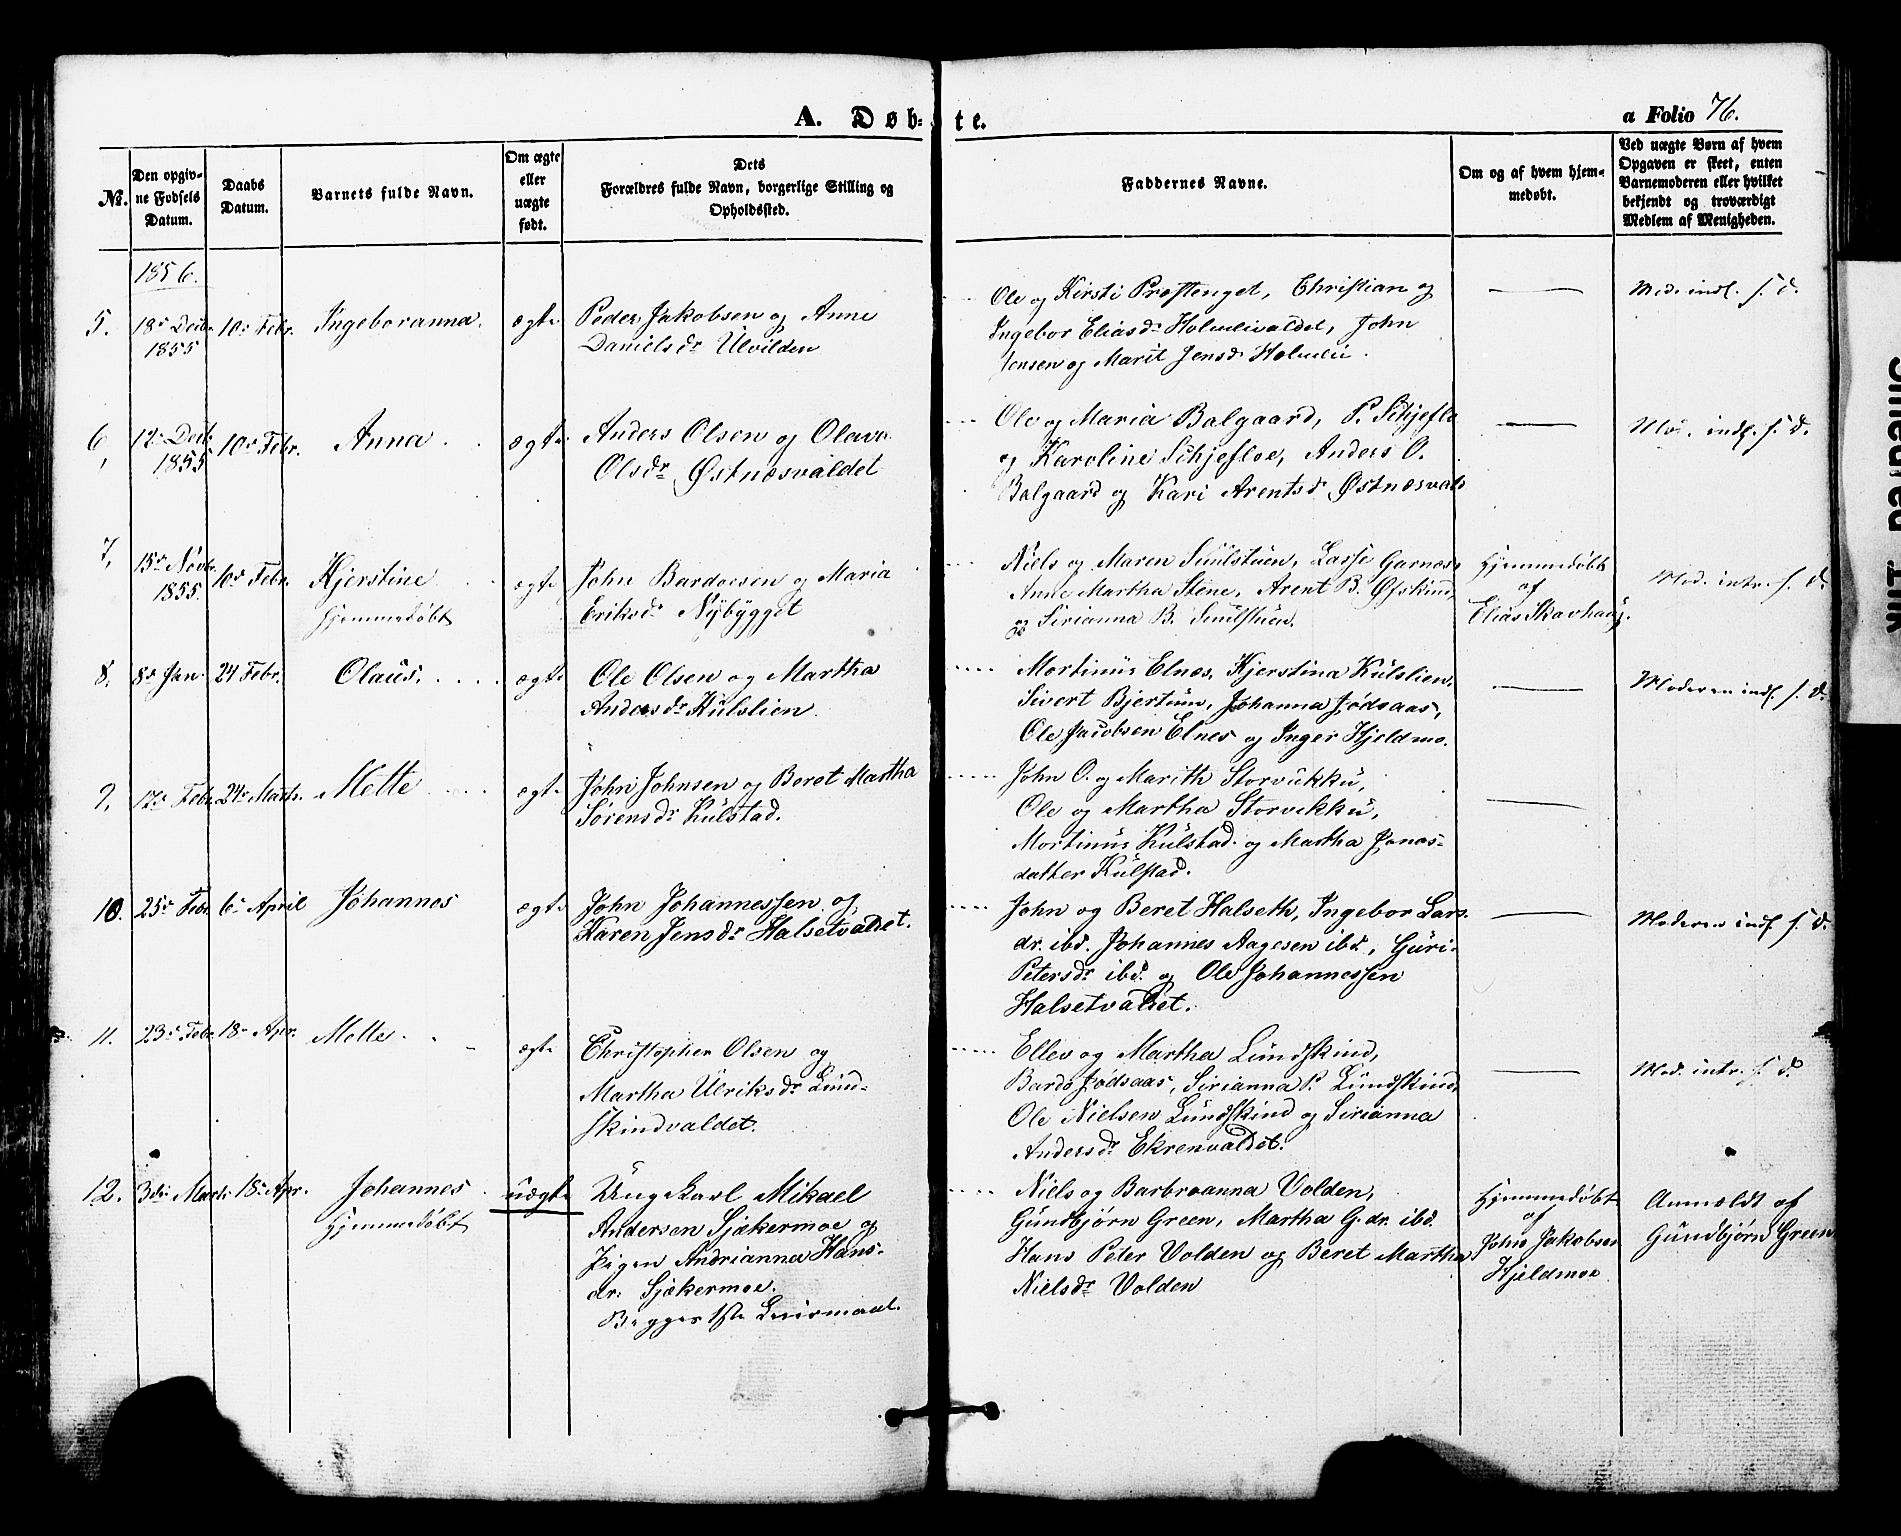 A. Døb-
te.
a Folio 76.
No.
Den opgiv-
ne Fødsels
Datum.
Daabs
Datum.
Barnets fulde Navn.
Om ægte
eller
uægte
født.
Dets
Forældres fulde Navn, borgerlige Stilling og
Opholdssted.
Faddernes Navne.
Om og af hvem hjem-
medøbt.
Ved uægte Børn af hvem
Opgaven er skeet, enten
Barnemoderen eller hvilket
bekjendt og troværdigt
Medlem af Menigheden.
1856.
5.
18de Decbr.
1855
10de Febr.
Ingeboranna.
ægte
Peder Jakobsen og Anne
Danielsdr Ulvilden
Ole og Kirsti Præstenget, Christian og
Ingebor Eliasdr Holmlivaldet, John
Jensen og Marit Jensdr Holmlii.
Mod. indl. s. d.
6,
12te Decbr.
1855
10de Febr.
Anna
ægte
Anders Olsen og Olava
Olsdr Østnæsvaldet
Ole og Maria Balgaard, P. Schjeflo
og Karoline Schjefloe, Anders O.
Balgaard og Kari Arentsd. Østnæsvald
Mod. indl. s. d.
7,
15de Novbr.
1855.
10de Febr.
Kjerstine
hjemmedøbt
ægte
John Bardoesen og Maria
Eriksdr Nybygget
Niels og Maren Smilstuen, Lasse Garnæs,
Anne Martha Stene, Arent B. Øfskind,
og Sirianna B. Smilstuen.
Hjemmedøbt
af
Elias Skavhaug.
Mod. intr. s. d.
8.
8de Jan.
24 Febr.
Olaus.
ægte
Ole Olsen og Martha
Andersdr Kulslien.
Mortinus Elnes, Kjerstina Kulslien,
Sivert Bjertum, Johanna Jødsaas,
Ole Jacobsen Elnes og Inger Hjeldmo.
Moderen indl. s. d.
9,
17de Febr.
24de Marts.
Mette
ægte
John Johnsen og Beret Martha
Sørensdr Kulstad.
John O. og Marith Storvukku,
Ole og Martha Storvukku,
Mortinus Kulstad og Martha Jonas-
datter Kulstad.
10.
25de Febr.
6te April
Johannes
ægte
John Johannessen og
Karen Jensdr Halsetvaldet.
John og Beret Halseth, Ingebor Lars-
dr. ibd. Johannes Aagesen ibd., Guri
Petersdr ibd. og Ole Johannessen
Halsetvaldet.
Moderen indl. s. d.
11.
23de Febr.
18de Apr.
Mette
ægte
Christopher Olsen og
Martha Ulriksdr Lund-
skindvaldet.
Ellev og Martha Lundskind,
Bardo Jødsaas, Sirianna P. Lundskind,
Ole Nielsen Lundskind og Sirianna
Andersdr Ekrenvaldet.
Mod. intr. s. d.
12.
3die Marts
18de Apr.
Johannes
Hjemmedøbt
uægte
Ungkarl Mikael
Andersen Sjækermoe og
Pigen Andrianna Hans-
dr. Sjækermoe.
Begges 1ste Leiermaal.
Niels og Barbroanna Volden,
Gundbjørn Green, Martha G.dr. ibd.
Hans Peter Volden og Beret Martha
Nielsdr Volden
Hjemmedøbt
af
John Jakobsen
Hjeldmoe
Anmeldt af
Gundbjørn Green